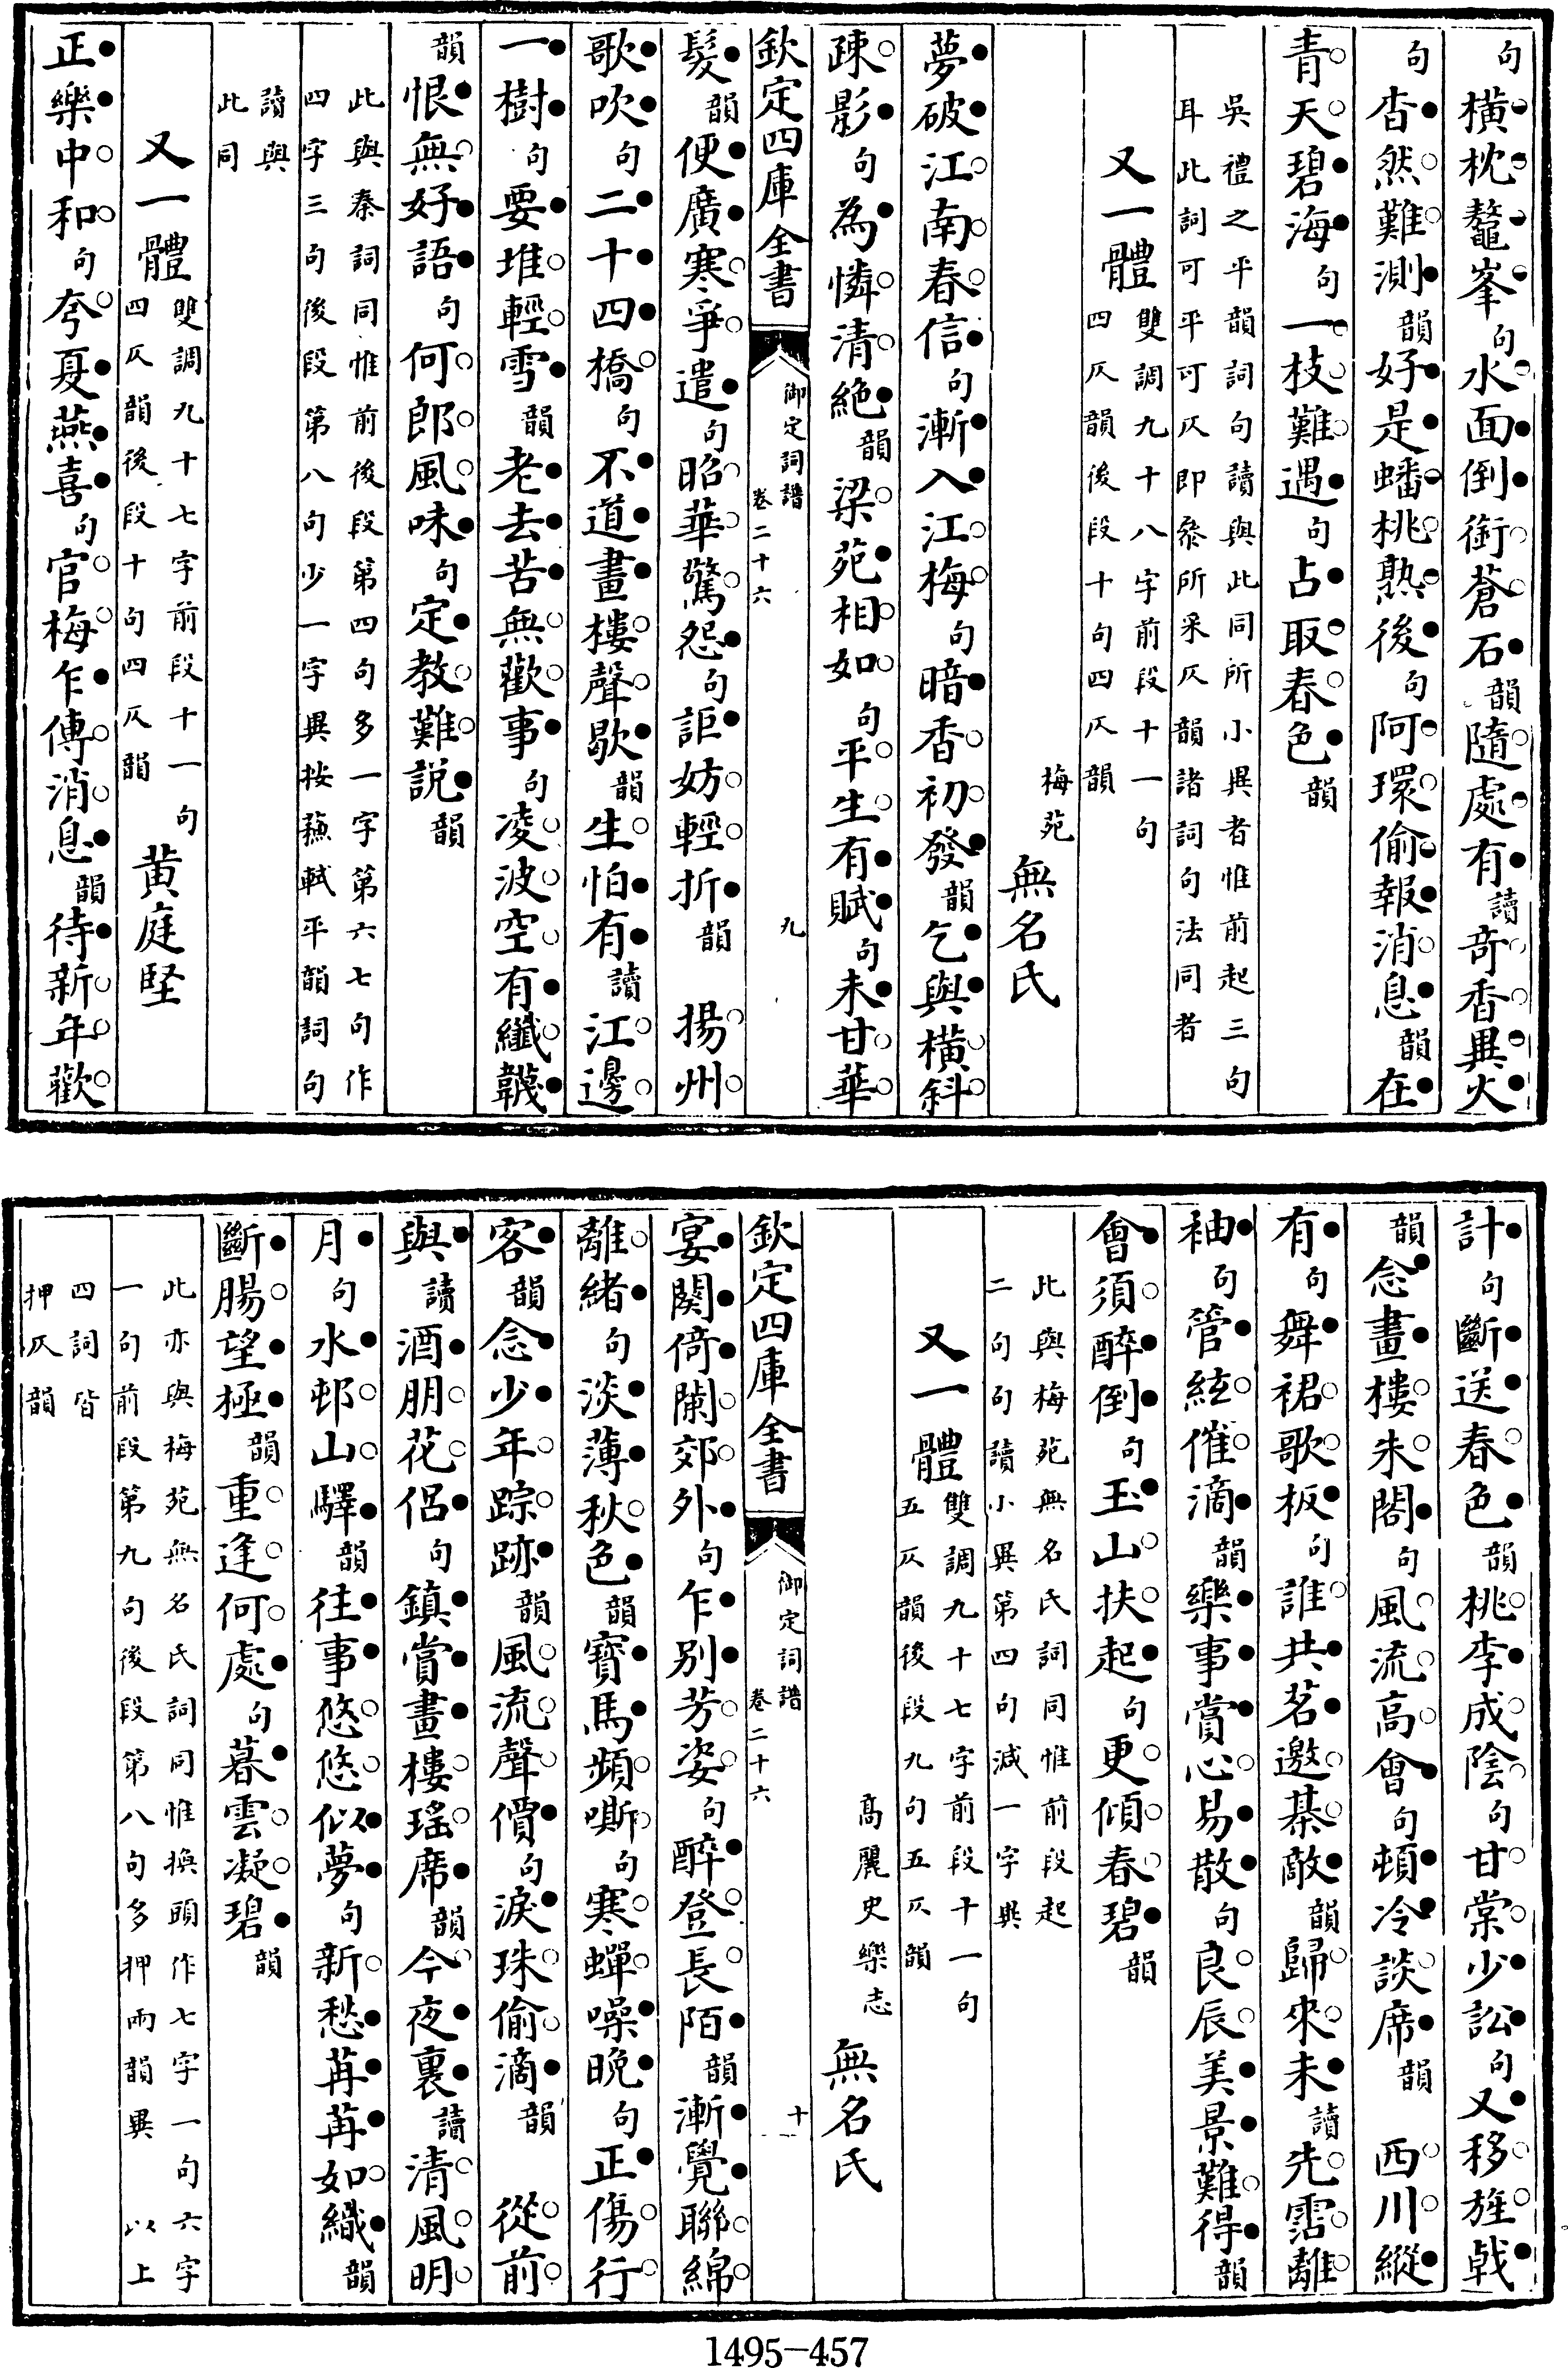 句橫枕鼇峯句水面倒銜蒼石韻隨處有讀奇香異火
句杳然難測韻好是蟠桃熟後句阿環偷報消息韻在
青天碧海句一枝難遇句占取春色韻
吳禮之平韻詞句讀與此同所小異者惟前起三句
耳此詞可平可仄即叅所采仄韻諸詞句法同者
又一體雙調九十八字前段十一句
四仄韻後段十句四仄韻
梅苑無名氏
夢破江南春信句漸入江梅句暗香初發韻乞與橫斜
疎影句為憐清絶韻梁苑相如句平生有賦句未甘華
欽定四庫全書
御定詞譜
卷二十六
九
髮韻便廣寒爭遣句昭華驚怨句詎妨輕折韻 揚州
歌吹句二十四橋句不道畫樓聲歇韻生怕有讀江邊
一樹句要堆輕雪韻老去苦無歡事句凌波空有纖韈
韻恨無好語句何郎風味句定教難説韻
此與秦詞同惟前後段第四句多一字第六七句作
四字三句後段第八句少一字異按蘇軾平韻詞句
讀與
此同
又一體雙調九十七字前段十一句
四仄韻後段十句四仄韻
黃庭堅
正樂中和句夸夏燕喜句官梅乍傳消息韻待新年歡
計句斷送春色韻桃李成陰句甘棠少訟句又移旌戟
韻念畫樓朱閣句風流高會句頓冷談席韻 西川縱
有句舞裙歌板句誰共茗邀棊敵韻歸來未讀先霑離
袖句管絃催滴韻樂事賞心易散句良辰美景難得韻
會須醉倒句玉山扶起句更傾春碧韻
此與梅苑無名氏詞同惟前段起
二句句讀小異第四句減一字異
又一體雙調九十七字前段十一句
五仄韻後段九句五仄韻
高麗史樂志無名氏
欽定四庫全書
御定詞譜
卷二十六
十
宴闋倚闌郊外句乍别芳姿句醉登長陌韻漸覺聯綿
離緒句淡薄秋色韻寶馬頻嘶句寒蟬噪晚句正傷行
客韻念少年踪跡韻風流聲價句淚珠偷滴韻 從前
與讀酒朋花侣句鎮賞畫樓瑤席韻今夜裏讀清風明
月句水邨山驛韻往事悠悠似夢句新愁苒苒如織韻
斷腸望極韻重逢何處句暮雲凝碧韻
此亦與梅苑無名氏詞同惟換頭作七字一句六字
一句前段第九句後段第八句多押兩韻異 以上
四詞皆
押仄韻
1495-457